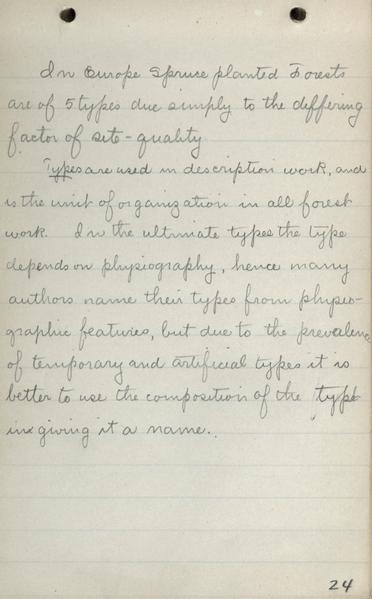 In Europe Spruce planted Forests
are of 5 types due simply to the differing
factor of site-quality.
Types are used in description work, and
is the unit of organization in all forest
work. In the ultimate types the type
depends on physiography, hence many
authors name their types from physio-
graphic features, but due to the prevalence
of temporary and artificial types it is
better to use the composition of the type
in giving it a name.
24